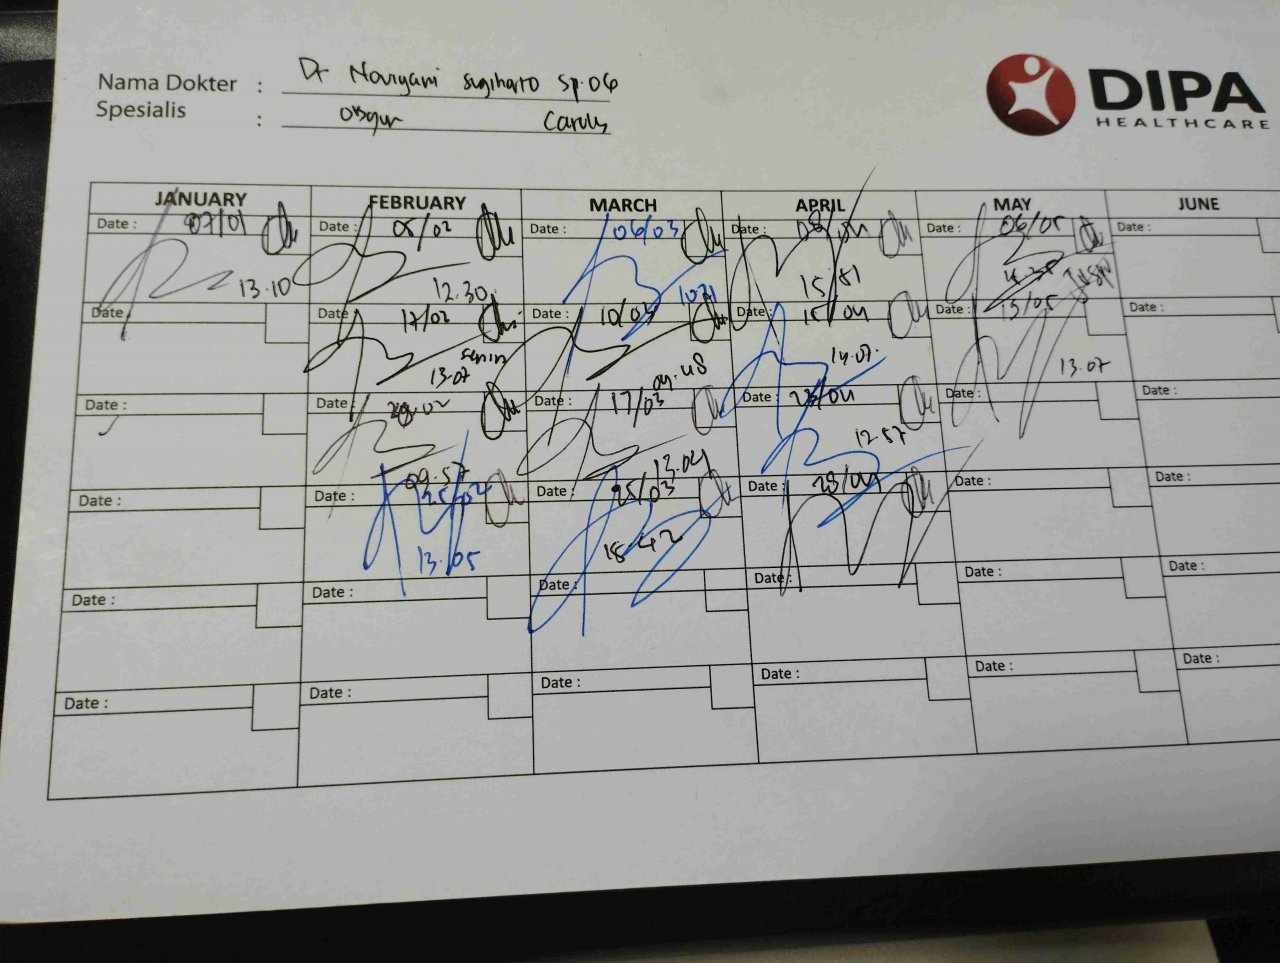 Nama Dokter : Dr Novryani Sugiharto Sp.OG
DIPA
HEALTHCARE
Spesialis : Obgyn Carolus
JANUARY FEBRUARY MARCH APRIL MAY JUNE
Date : 07/01 Date : 05/02 Date : 06/03 Date : 08/04 Date : 06/05 Date :
13.10 12.30 1031 15.51
Date : Date : 17/02 Date : 10/03 Date : 15/04 Date : 13/05 Date :
Senin
13.07 09.48 14.07. 13.07
Date : Date : 20.02 Date : 17/03 Date : 23/04 Date : Date :
09.57 13.04 12.57
Date : Date : 25/02 Date : 25/03 Date : 28/04 Date : Date :
13.05 18.42
Date : Date : Date : Date : Date : Date :
Date : Date : Date : Date : Date : Date :